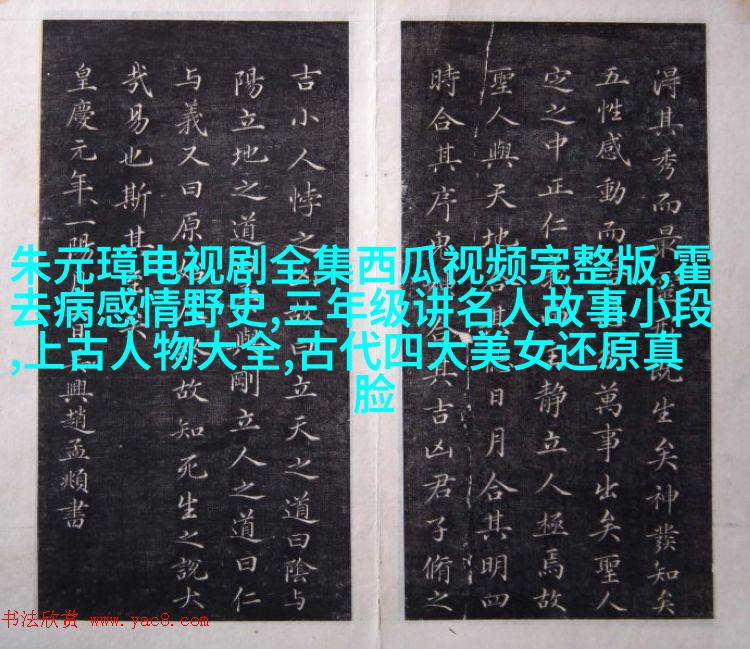 朱元璋电视剧全集西瓜视频完整版,霍
去病感情野史,三年级讲名人故事小段
,上古人物大全,古代四大美女还原真
脸
淂其秀而最既生矣神發知矣
五性感動而萬事出矣聖人
定之中正仁主靜立人極焉故
聖人與天地合其日月合其明四
時合其序鬼合其吉凶君子脩之
吉小人悖之故曰立天之道曰陰与
陽立地之道與剛立人之道曰仁
与義又曰原故知死生之說大
哉易也斯其矣
皇慶元年一陽月日興趙孟頫書
书法欣赏 www.yac8.com